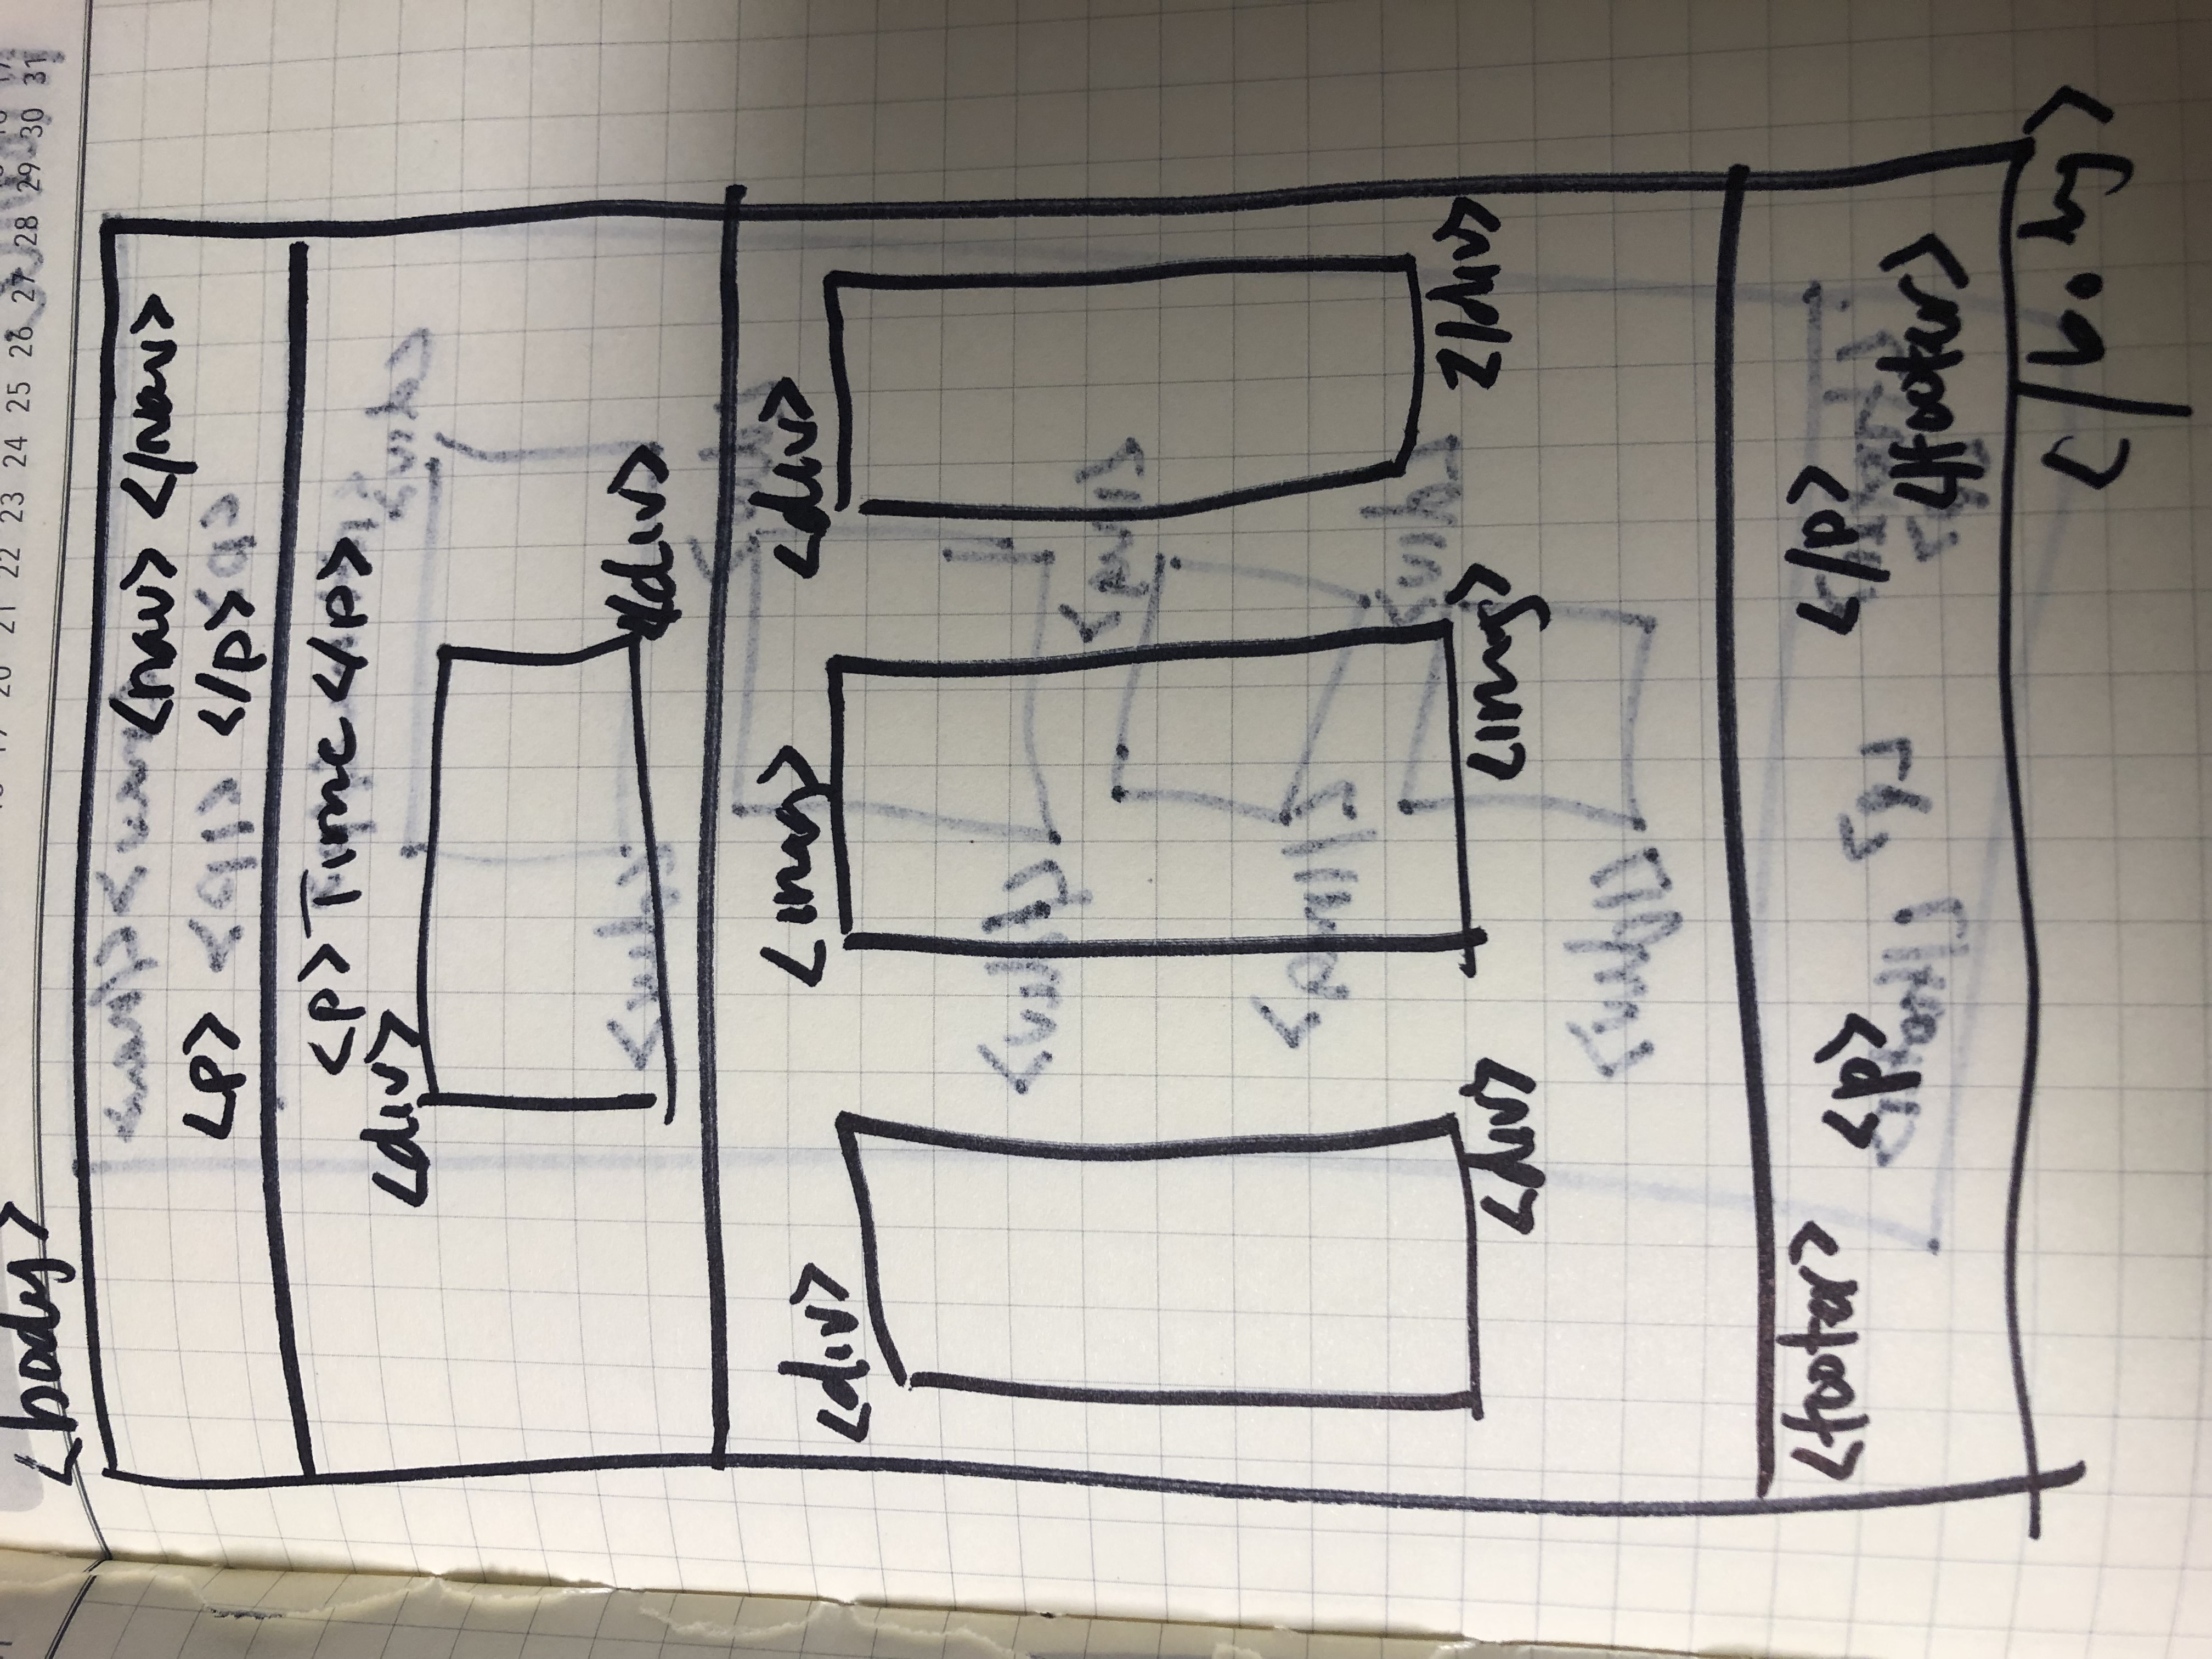 17 20 21 22 23 24 25 26 27 28 29 30 31
<body>
<nav> </nav>
<p> </p>
<p> Time </p>
<div>
</div>
<div> <img> <div>
<div> <img> </div>
<footer> <p> </p>
</footer>
</body>